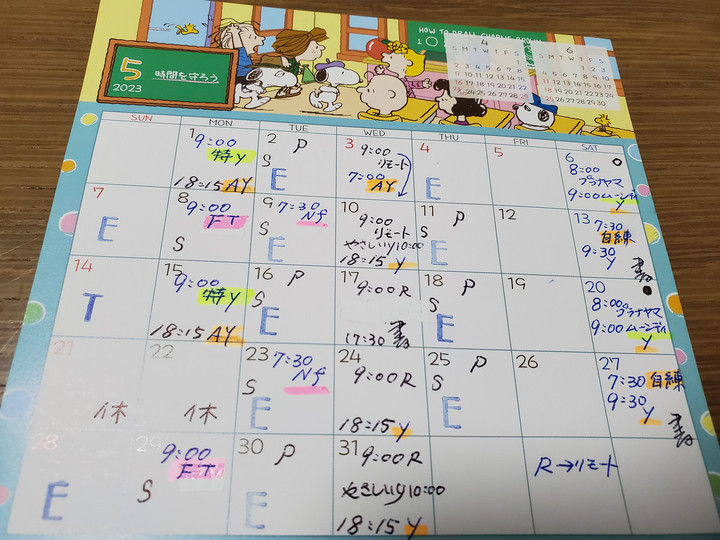 5
2023
時間を守ろう
HOW TO DRAW CHARLIE BROWN
1
4
S M T W T F S
6
S M T W T F S
SUN MON TUE WED THU FRI SAT
1
9:00
特Y
18:15 AY
2
P
S
E
3
9:00
リモート
7:00
AY
4
E
5
6
8:00
プラナヤマ
9:00 ムーンディ
Y
7
E
8
9:00
FT
S
9
7:30
Nf
S
E
10
9:00
リモート
やさしいy 10:00
18:15 Y
11
P
S
E
12
13
7:30
自練
9:30
Y
14
T
15
9:00
特Y
18:15 AY
16
P
S
E
17
9:00 R
17:30
18
P
S
E
19
20
8:00
プラナヤマ
9:00 ムーンディ
Y
21
休
22
休
23
7:30
Nf
S
E
24
9:00 R
18:15 Y
25
P
S
E
26
27
7:30 自練
9:30
Y
28
E
29
9:00
FT
S
30
P
E
31
9:00 R
やさしいy 10:00
18:15 Y
R→リモート